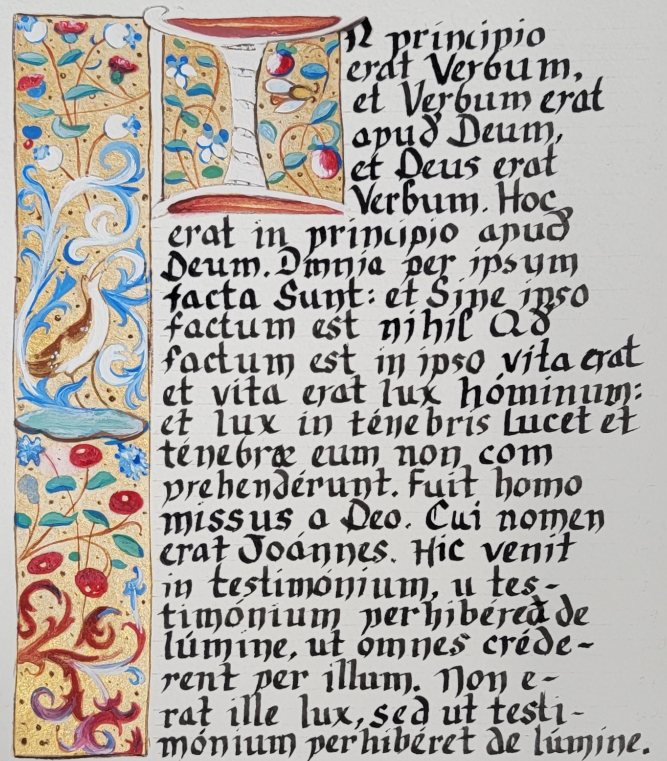 In principio
erat Verbum,
et Verbum erat
apud Deum,
et Deus erat
Verbum. Hoc
erat in principio apud
Deum. Omnia per ipsum
facta Sunt: et Sine ipso
factum est nihil Qd
factum est in ipso vita erat
et vita erat lux hóminum:
et lux in ténebris Lucet et
ténebræ eum non com
prehendérunt. Fuit homo
missus a Deo. Cui nomen
erat Joánnes. Hic venit
in testimónium, u tes-
timónium perhibéred de
lúmine, ut omnes créde-
rent per illum. Non e-
rat ille lux, sed ut testi-
mónium perhibéret de lúmine.